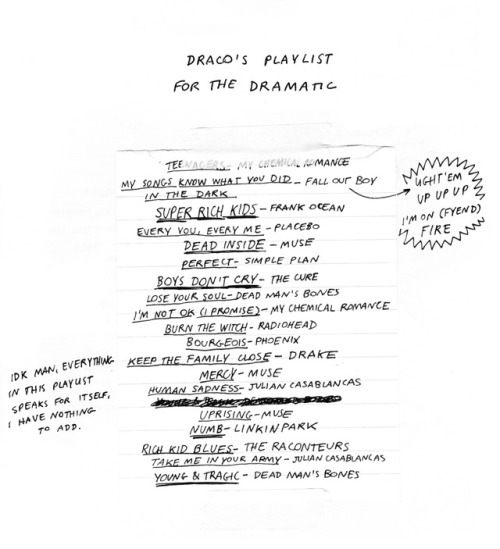 DRACO'S PLAYLIST
FOR THE DRAMATIC
TEENAGERS - MY CHEMICAL ROMANCE
MY SONGS KNOW WHAT YOU DID - FALL OUT BOY
IN THE DARK
LIGHT 'EM
UP UP UP
I'M ON (FYEND)
FIRE
SUPER RICH KIDS - FRANK OCEAN
EVERY YOU, EVERY ME - PLACEBO
DEAD INSIDE - MUSE
PERFECT - SIMPLE PLAN
BOYS DON'T CRY - THE CURE
LOSE YOUR SOUL - DEAD MAN'S BONES
I'M NOT OK (I PROMISE) - MY CHEMICAL ROMANCE
BURN THE WITCH - RADIOHEAD
BOURGEOIS - PHOENIX
KEEP THE FAMILY CLOSE - DRAKE
MERCY - MUSE
HUMAN SADNESS - JULIAN CASABLANCAS
UPRISING - MUSE
NUMB - LINKIN PARK
RICH KID BLUES - THE RACONTEURS
TAKE ME IN YOUR ARMY - JULIAN CASABLANCAS
YOUNG & TRAGIC - DEAD MAN'S BONES
IDK MAN, EVERYTHING
IN THIS PLAYLIST
SPEAKS FOR ITSELF,
I HAVE NOTHING
TO ADD.